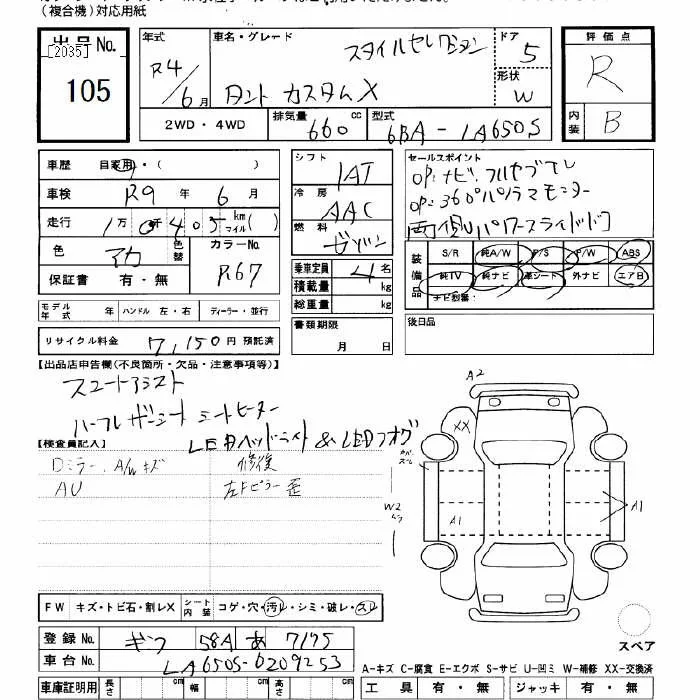 （複合機）対応用紙
出品No.
[2035]
105
年式
R4/6月
車名・グレード
スタイルセレクション
タント カスタムX
ドア
5
形状
W
評価点
R
内装
B
2WD・4WD
排気量
660 cc
型式
6BA-LA650S
車歴 自家用・( )
車検 R9 年 6 月
走行 1万0千405 km マイル( )
色 アカ 色替 カラーNo. R67
保証書 有・無
シフト
IAT
冷房
AAC
燃料
ガソリン
乗車定員 4 名
積載量 kg
総重量 kg
セールスポイント
OP:ナビ.フルセグTV
OP:360°パノラマモニター
両側パワースライドドア
装備品
S/R 純A/W P/S P/W ABS
純TV 純ナビ 革シート 外ナビ エアB
ナビ型番:
モデル年式 年 ハンドル 左・右 ディーラー・並行
書類期限
月 日
後日品
リサイクル料金 7,150円 預託済
【出品店申告欄(不良箇所・欠品・注意事項等)】
スマートアシスト
ハーフレザーシート シートヒーター
LEDヘッドライト & LEDフォグ
【検査員記入】
Dミラー、A/Wキズ
AU
修復
左Fピラー歪
A2
XX
W2
A1
A1
スペア
FW キズ・トビ石・割レX シート内装 コゲ・穴・汚レ・シミ・破レ・スレ
登録No. ギフ 58A あ 7175
車台No. LA650S-0209253
車庫証明用 長さ cm 幅 cm 高さ cm
A-キズ C-腐食 E-エクボ S-サビ U-凹ミ W-補修 XX-交換済
工具 有・無 ジャッキ 有・無